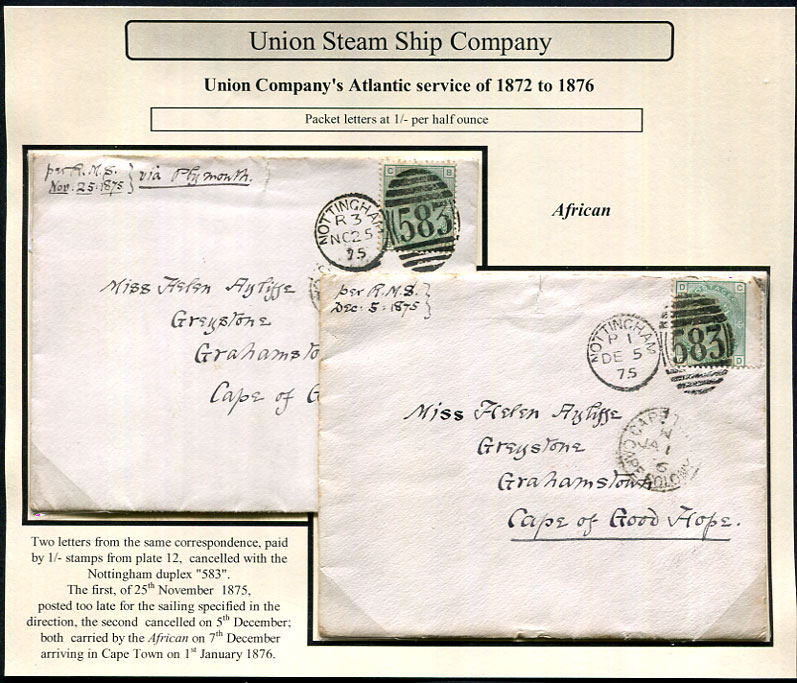 Union Steam Ship Company
Union Company's Atlantic service of 1872 to 1876
Packet letters at 1/- per half ounce
per R.M.S.
Nov. 25: 1875
via Plymouth.
C B
583
NOTTINGHAM
R 3
NO 25
75
Miss Helen Ayliffe
Greystone
Grahamsto
Cape of G
African
per R.M.S.
Dec. 5: 1875
D C
C D
583
NOTTINGHAM
P 1
DE 5
75
Miss Helen Ayliffe
Greystone
Grahamstown
Cape of Good Hope.
CAPE
JA 1
6
COLONY
Two letters from the same correspondence, paid
by 1/- stamps from plate 12, cancelled with the
Nottingham duplex "583".
The first, of 25th November 1875,
posted too late for the sailing specified in the
direction, the second cancelled on 5th December;
both carried by the African on 7th December
arriving in Cape Town on 1st January 1876.